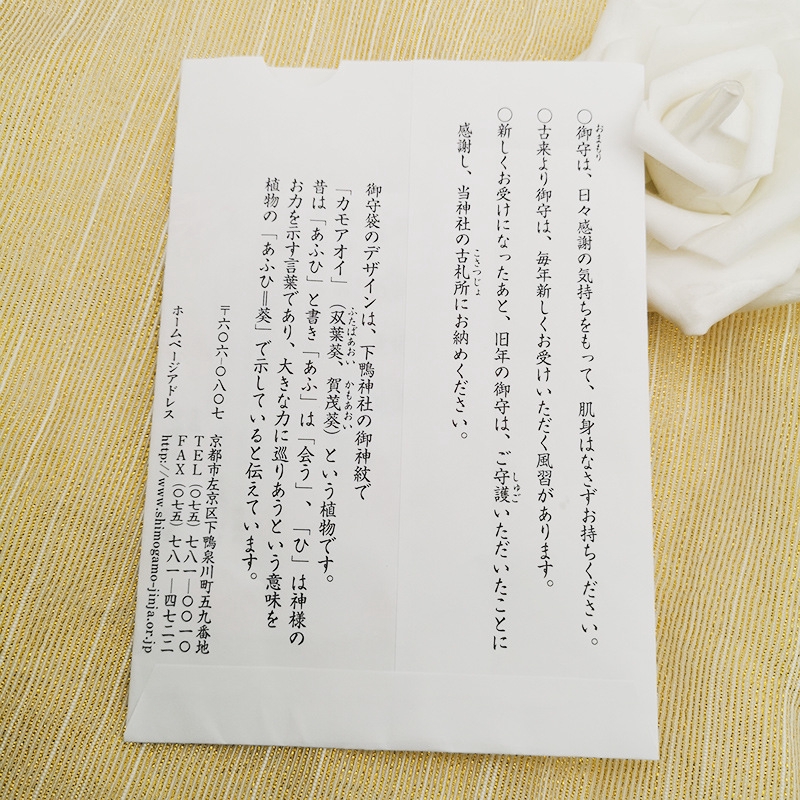 ○御守は、日々感謝の気持ちをもって、肌身はなさずお持ちください。
おまもり
○古来より御守は、毎年新しくお受けいただく風習があります。
○新しくお受けになったあと、旧年の御守は、ご守護いただいたことに
しゅご
感謝し、当神社の古札所にお納めください。
こさつじょ
御守袋のデザインは、下鴨神社の御神紋で
「カモアオイ」（双葉葵、賀茂葵）という植物です。
ふたばあおい かもあおい
昔は「あふひ」と書き「あふ」は「会う」、「ひ」は神様の
お力を示す言葉であり、大きな力に巡りあうという意味を
植物の「あふひ＝葵」で示していると伝えています。
〒六〇六―〇八〇七 京都市左京区下鴨泉川町五九番地
TEL（〇七五）七八一―〇〇一〇
FAX（〇七五）七八一―四七二二
ホームページアドレス http://www.shimogamo-jinja.or.jp